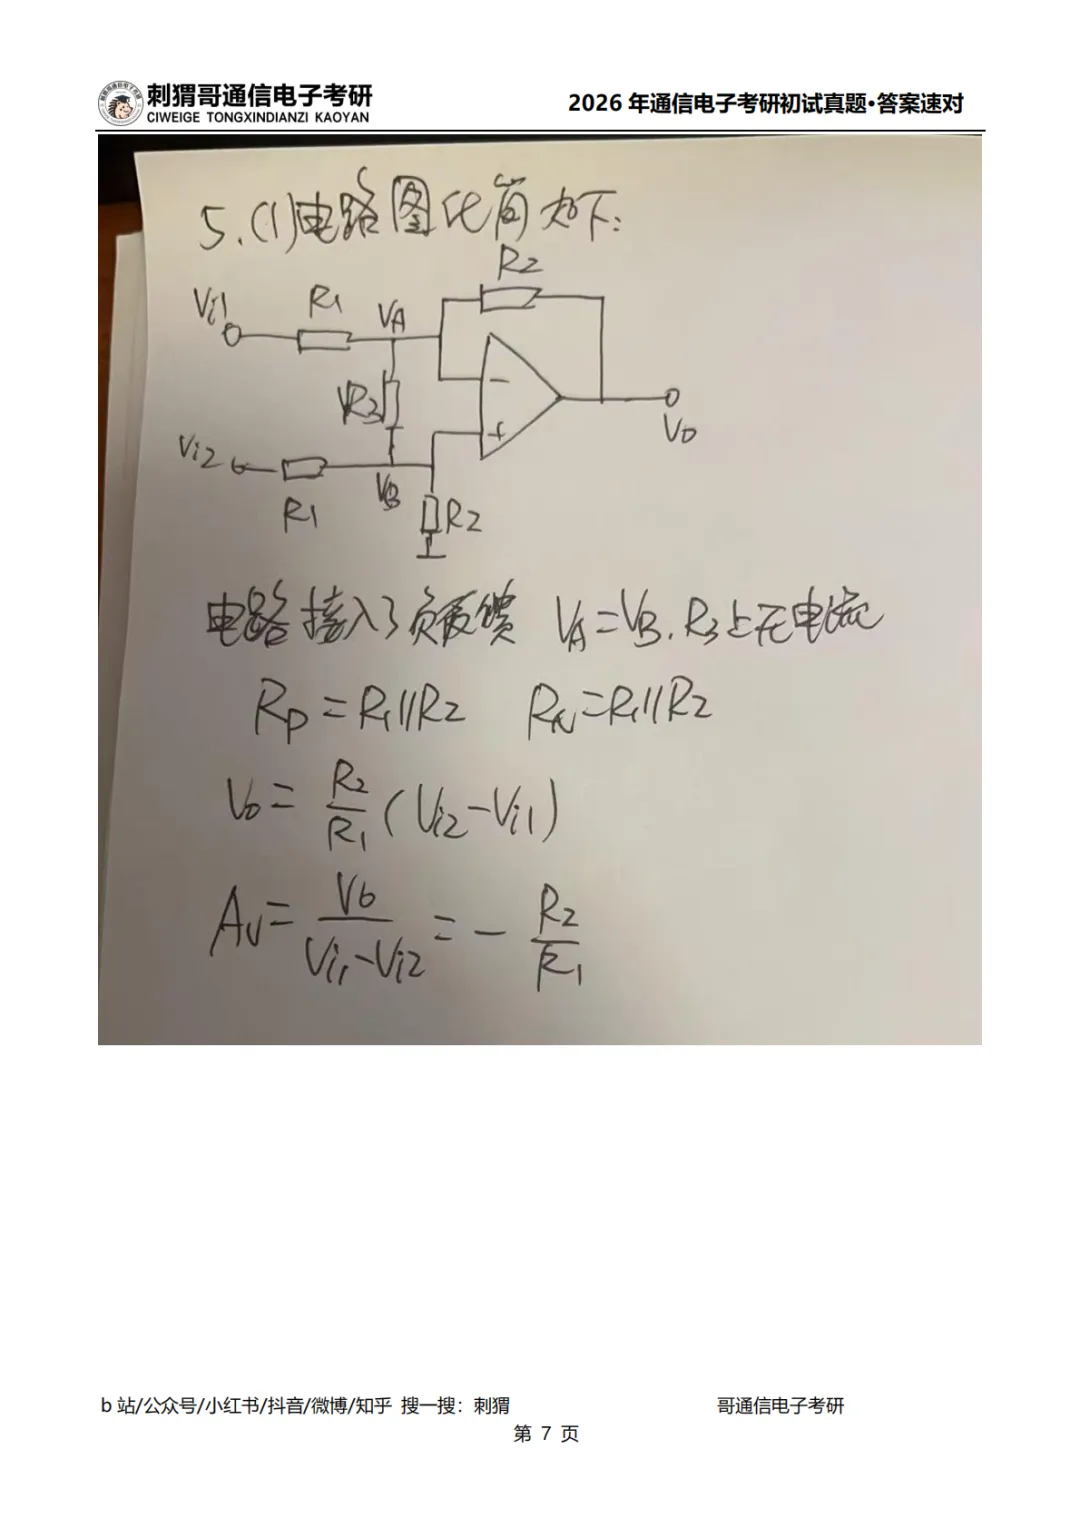 刺猬哥通信电子考研
CIWEIGE TONGXINDIANZI KAOYAN
2026 年通信电子考研初试真题·答案速对
5.(1)电路图化简如下:
R2
Vi1
R1
VA
R3
Vi2
R1
VB
R2
Vo
电路接入了负反馈 VA=VB. R3上无电流
Rp=R1//R2 RN=R1//R2
Vo= R2/R1 (Vi2-Vi1)
Av= Vo/Vi1-Vi2 = - R2/R1
b 站/公众号/小红书/抖音/微博/知乎 搜一搜：刺猬
哥通信电子考研
第 7 页